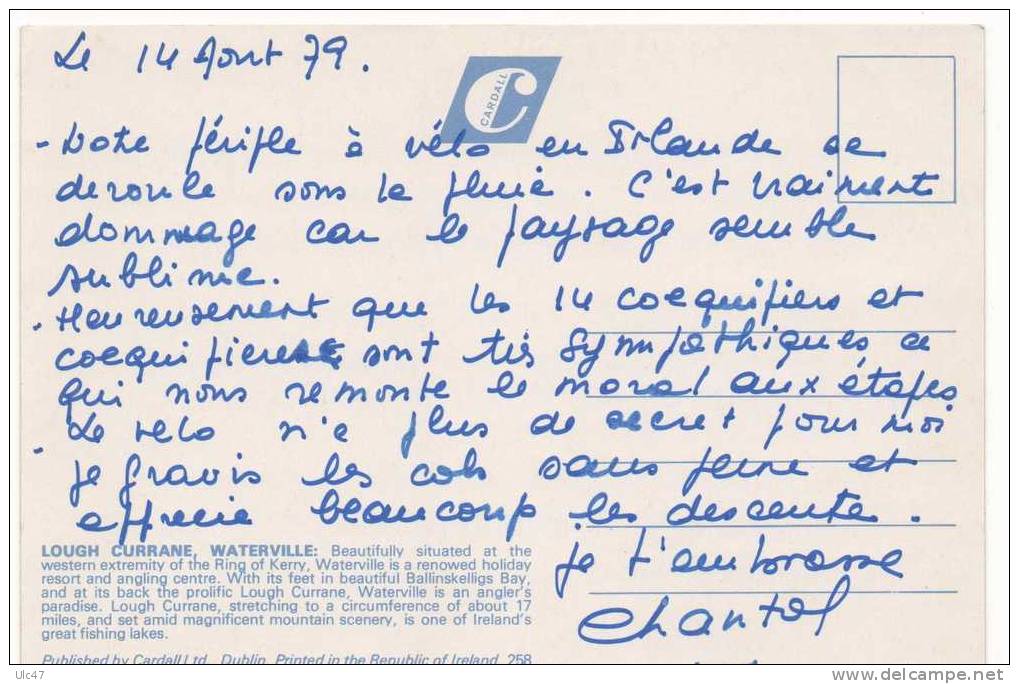 Le 14 Aout 79.
CARDALL
- Notre périple à vélo en Irlande se
deroule sous la pluie. C'est vraiment
dommage car le paysage semble
sublime.
. Heureusement que les 14 coequipiers et
coequipieres sont très sympathiques ce
qui nous remonte le moral aux étapes
- Le velo n'a plus de secret pour moi
je gravis les cols sans peine et
apprecie beaucoup les descente.
je t'embrasse
Chantal
LOUGH CURRANE, WATERVILLE: Beautifully situated at the
western extremity of the Ring of Kerry, Waterville is a renowed holiday
resort and angling centre. With its feet in beautiful Ballinskelligs Bay,
and at its back the prolific Lough Currane, Waterville is an angler's
paradise. Lough Currane, stretching to a circumference of about 17
miles, and set amid magnificent mountain scenery, is one of Ireland's
great fishing lakes.
Published by Cardall Ltd., Dublin. Printed in the Republic of Ireland. 258
Ulc47
delcampe.net